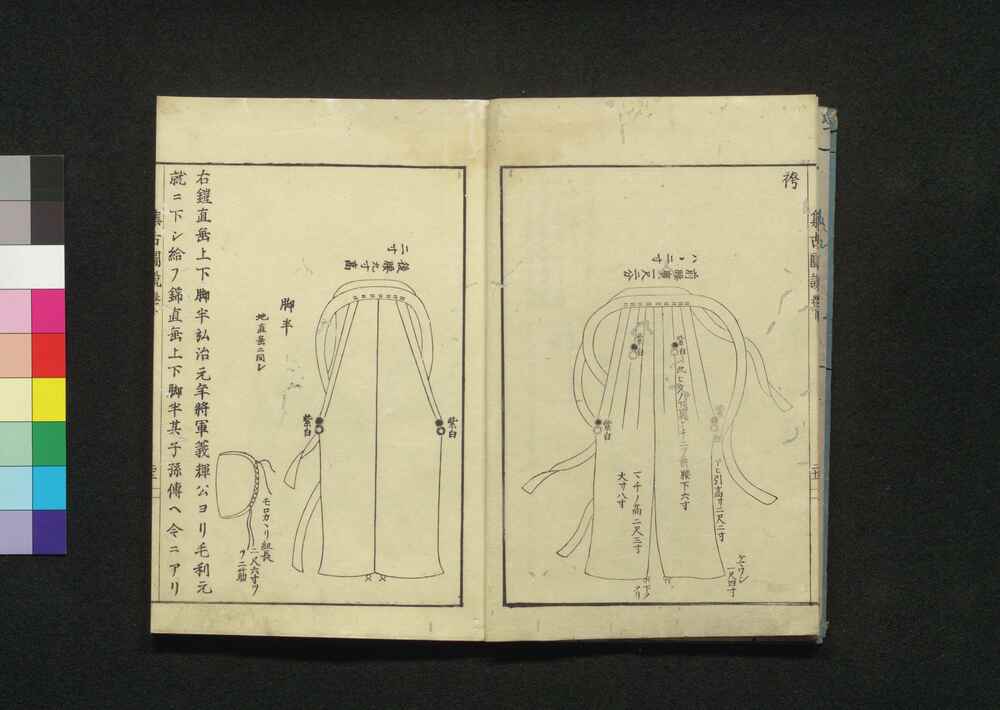 袴
前腰廣一尺二分
八ヽ二寸
紫白
紫白
紫白
紫白
腰下六寸
マチノ高二尺三寸
大寸八寸
引高サ二尺二寸
一尺四寸
後腰九寸高
二寸
紫白
紫白
脚半
地直垂ニ同シ
モロカヽリ組長
二尺六寸ツ
ヽ二筋
右鎧直垂上下脚半弘治元年將軍義輝公ヨリ毛利元
就ニ下シ給フ錦直垂上下脚半其子孫傳ヘ今ニアリ